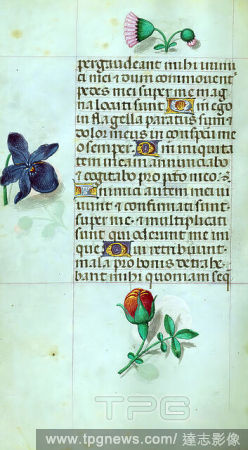 pergaudeant mihi inimi
ci mei ⁊ dum commouent
pedes mei super me mag
na locuti sunt Q m ego
in flagella paratus sum ⁊
dolor meus in conspectu me
o semper Q m iniquita
tem meam annunciabo
⁊ cogitabo pro pcto meo
I nimici autem mei vi
uunt ⁊ confirmati sunt
super me ⁊ multiplicati
sunt qui oderunt me ini
que Q ui retribuunt
mala pro bonis detrahe
bant mihi quoniam seq
TPG
www.tpgnews.com/達志影像